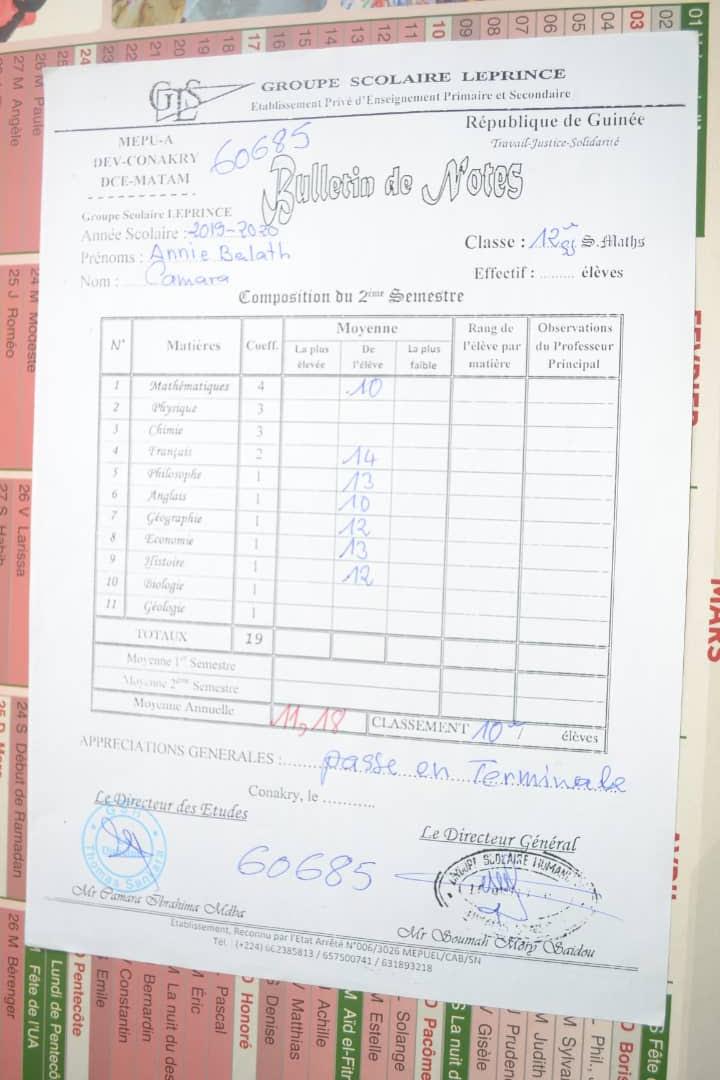 GLS
GROUPE SCOLAIRE LEPRINCE
Etablissement Privé d'Enseignement Primaire et Secondaire
République de Guinée
Travail-Justice-Solidarité
MEPU-A
DEV-CONAKRY
DCE-MATAM
60685
Bulletin de Notes
Groupe Scolaire LEPRINCE
Année Scolaire : 2019-2020
Prénoms : Annie Balath
Nom : Camara
Classe : 12 S.Maths
Effectif : ......... élèves
Composition du 2ème Semestre
N° Matières Coeff. Moyenne Rang de l'élève par matière Observations du Professeur Principal
La plus élevée De l'élève La plus faible
1 Mathématiques 4 10
2 Physique 3
3 Chimie 3
4 Français 2 14
5 Philosophe 1 13
6 Anglais 1 10
7 Géographie 1 12
8 Economie 1 13
9 Histoire 1 12
10 Biologie 1
11 Géologie 1
TOTAUX 19
Moyenne 1er Semestre
Moyenne 2ème Semestre
Moyenne Annuelle 11,18 CLASSEMENT 10e / élèves
APPRECIATIONS GENERALES : passe en Terminale
Conakry, le ...........
Le Directeur des Etudes
Le Directeur Général
Thomas Sankara
60685
Mr Camara Ibrahima Mdba
Mr Soumah Mory Saidou
Etablissement, Reconnu par l'Etat Arrêté N°006/3026 MEPUEL/CAB/SN
Tél : (+224) 662385813 / 657500741 / 631893218
FEVRIER
MARS
AVRIL
26 M Paule
27 M Angèle
24 M Modeste
25 J Roméo
26 V Larissa
27 S Habib
24 S Début de Ramadan
26 M Bérenger
Fête de l'UA
Lundi de Pentecô
Pentecôte
S Emile
V Constantin
Bernardin
M La nuit du des
M Éric
Pascal
D Honoré
S Denise
V Matthias
Achille
M Aïd el-Fitr
M Estelle
Solange
D Pacôme
S La nuit d
V Gisèle
Pruden
M Judith
M Sylva
Phil.,
D Boris
S Fête